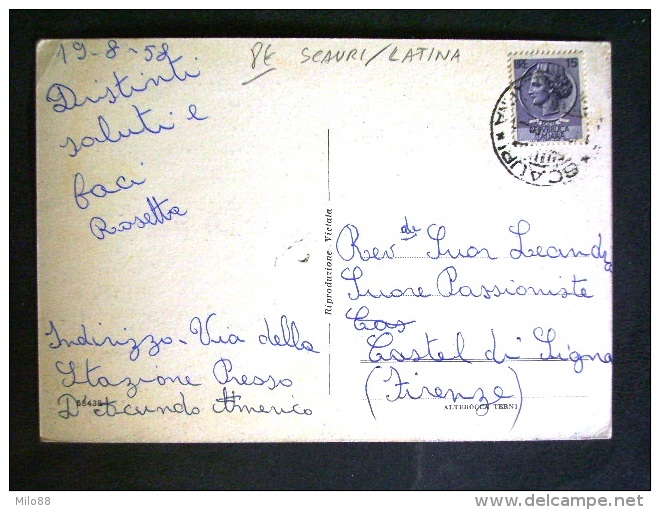 19-8-58
8E SCAURI/LATINA
LIRE 15
POSTE
REPVBBLICA
ITALIANA
* SCAURI *
Distinti
saluti e
baci
Rosetta
Riproduzione Vietata
Rev de Suor Leandra
Suore Passioniste
Cas
Castel di Signa
(Firenze)
Indirizzo - Via della
Stazione Presso
Americo
ALTEROCCA TERNI
Milo88
delcampe.net